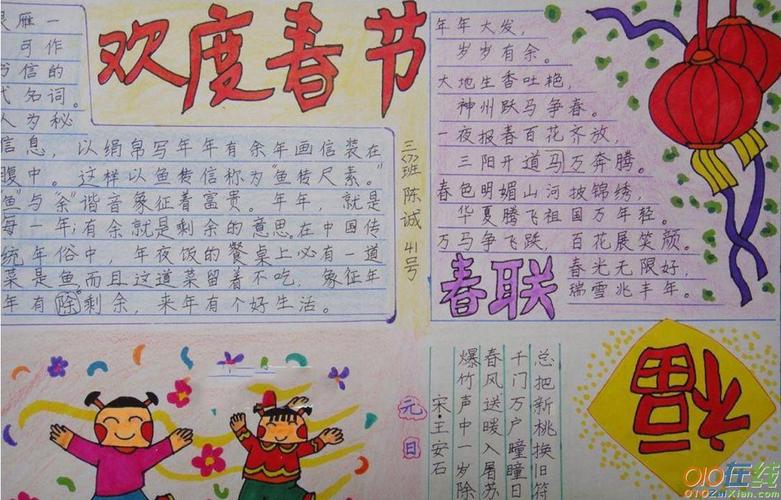 雁一
可作
书信的
代名词。
人为秘
信息，以绢帛写年年有余年画信装在
腹中。这样以鱼传信称为“鱼传尺素。”
“鱼”与“余”谐音象征着富贵。年年，就是
每一年；有余就是剩余的意思。在中国传
统年俗中，年夜饭的餐桌上必有一道
菜是鱼，而且这道菜留着不吃，象征年
年有除剩余，来年有个好生活。
欢度春节
三⑺班 陈诚 41号
年年大发，
岁岁有余。
大地生香吐艳，
神州跃马争春。
一夜报春百花齐放，
三阳开道马万奔腾。
春色明媚山河披锦绣，
华夏腾飞祖国万年轻。
万马争飞跃，百花展笑颜。
春光无限好，
瑞雪兆丰年。
春联
元日
宋·王安石
爆竹声中一岁除
春风送暖入屠苏
千门万户曈曈日
总把新桃换旧符
福
010在线
010ZaiXian.com